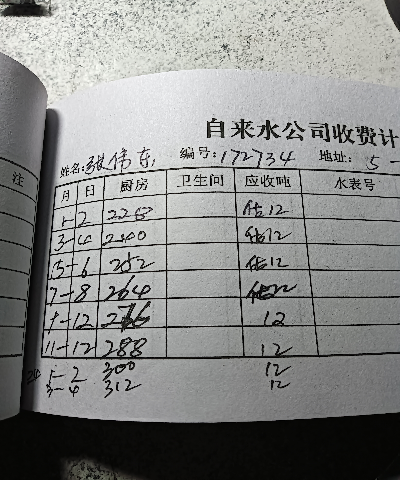 自来水公司收费计
姓名:张伟东 编号:172734 地址:5-
注 月 日 厨房 卫生间 应收吨 水表号
1-2 228 估12
3-4 240 估12
5-6 252 估12
7-8 264 估12
9-12 276 12
11-12 288 12
1-2 300 12
3-4 312 12